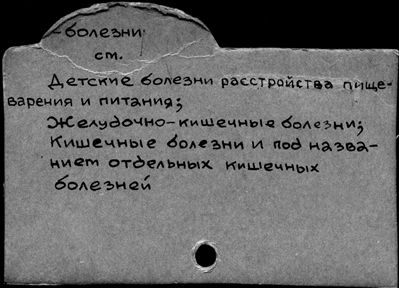 -болезни
см.
Детские болезни расстройства пище-
варения и питания;
Желудочно-кишечные болезни;
Кишечные болезни и под назва-
нием отдельных кишечных
болезней